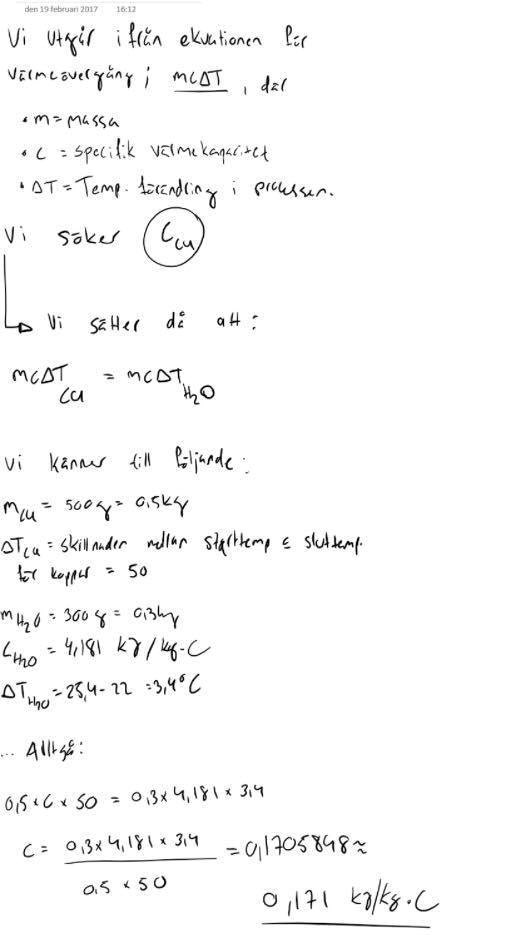 den 19 februari 2017 16:12
Vi utgår ifrån ekvationen för
värmeövergång; mcΔT, där
• m = massa
• c = specifik värmekapacitet
• ΔT = Temp. förändring i processen.
Vi söker Ccu
Vi sätter då att:
mcΔTcu = mcΔTH₂O
Vi känner till följande:
mcu = 500g = 0,5kg
ΔTcu = skillnaden mellan starttemp & sluttemp.
för koppar = 50
mH₂O = 300g = 0,3kg
CH₂O = 4,181 kJ/kg·C
ΔTH₂O = 25,4 - 22 = 3,4°C
... Alltså:
0,5 × C × 50 = 0,3 × 4,181 × 3,4
C = 0,3 × 4,181 × 3,4 = 0,1705848 ≈
0.5 × 50
0,171 kJ/kg·C